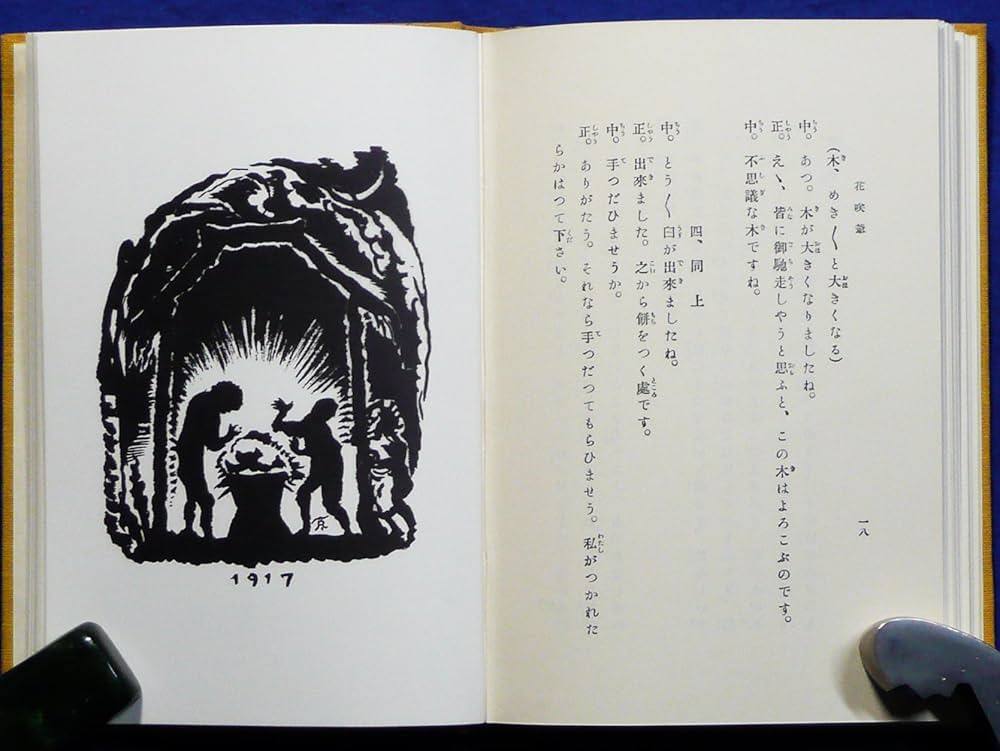 花咲爺
一八
(木、めき〱と大きくなる)
中。あつ。木が大きくなりましたね。
正。えゝ、皆に御馳走しやうと思ふと、この木はよろこぶのです。
中。不思議な木ですね。
四、同上
中。とう〱臼が出來ましたね。
正。出來ました。之から餅をつく處です。
中。手つだひませうか。
正。ありがたう。それなら手つだつてもらひませう。私がつかれた
らかはつて下さい。
1917